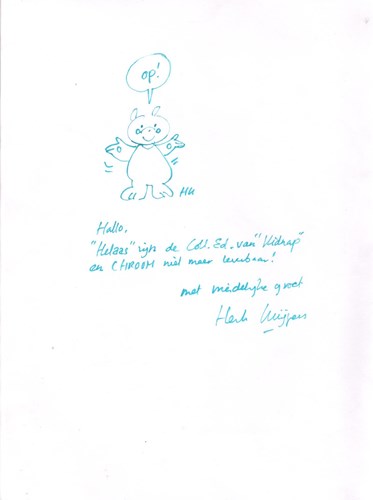 op!
HK
Hallo,
"Helaas" zijn de Coll. Ed. van "Kidnap"
en CHROOM niet meer leverbaar!
met vriendelijke groet
Henk Kuijpers